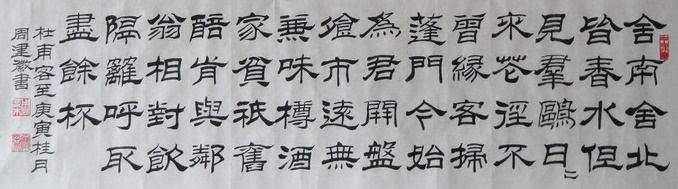 舍南舍北
皆春水但
見羣鷗日〻
來花徑不
曾緣客掃
蓬門今始
為君開盤
飧市遠無
兼味樽酒
家貧祇舊
醅肯與鄰
翁相對飲
隔籬呼取
盡餘杯
杜甫客至庚寅桂月
周建書